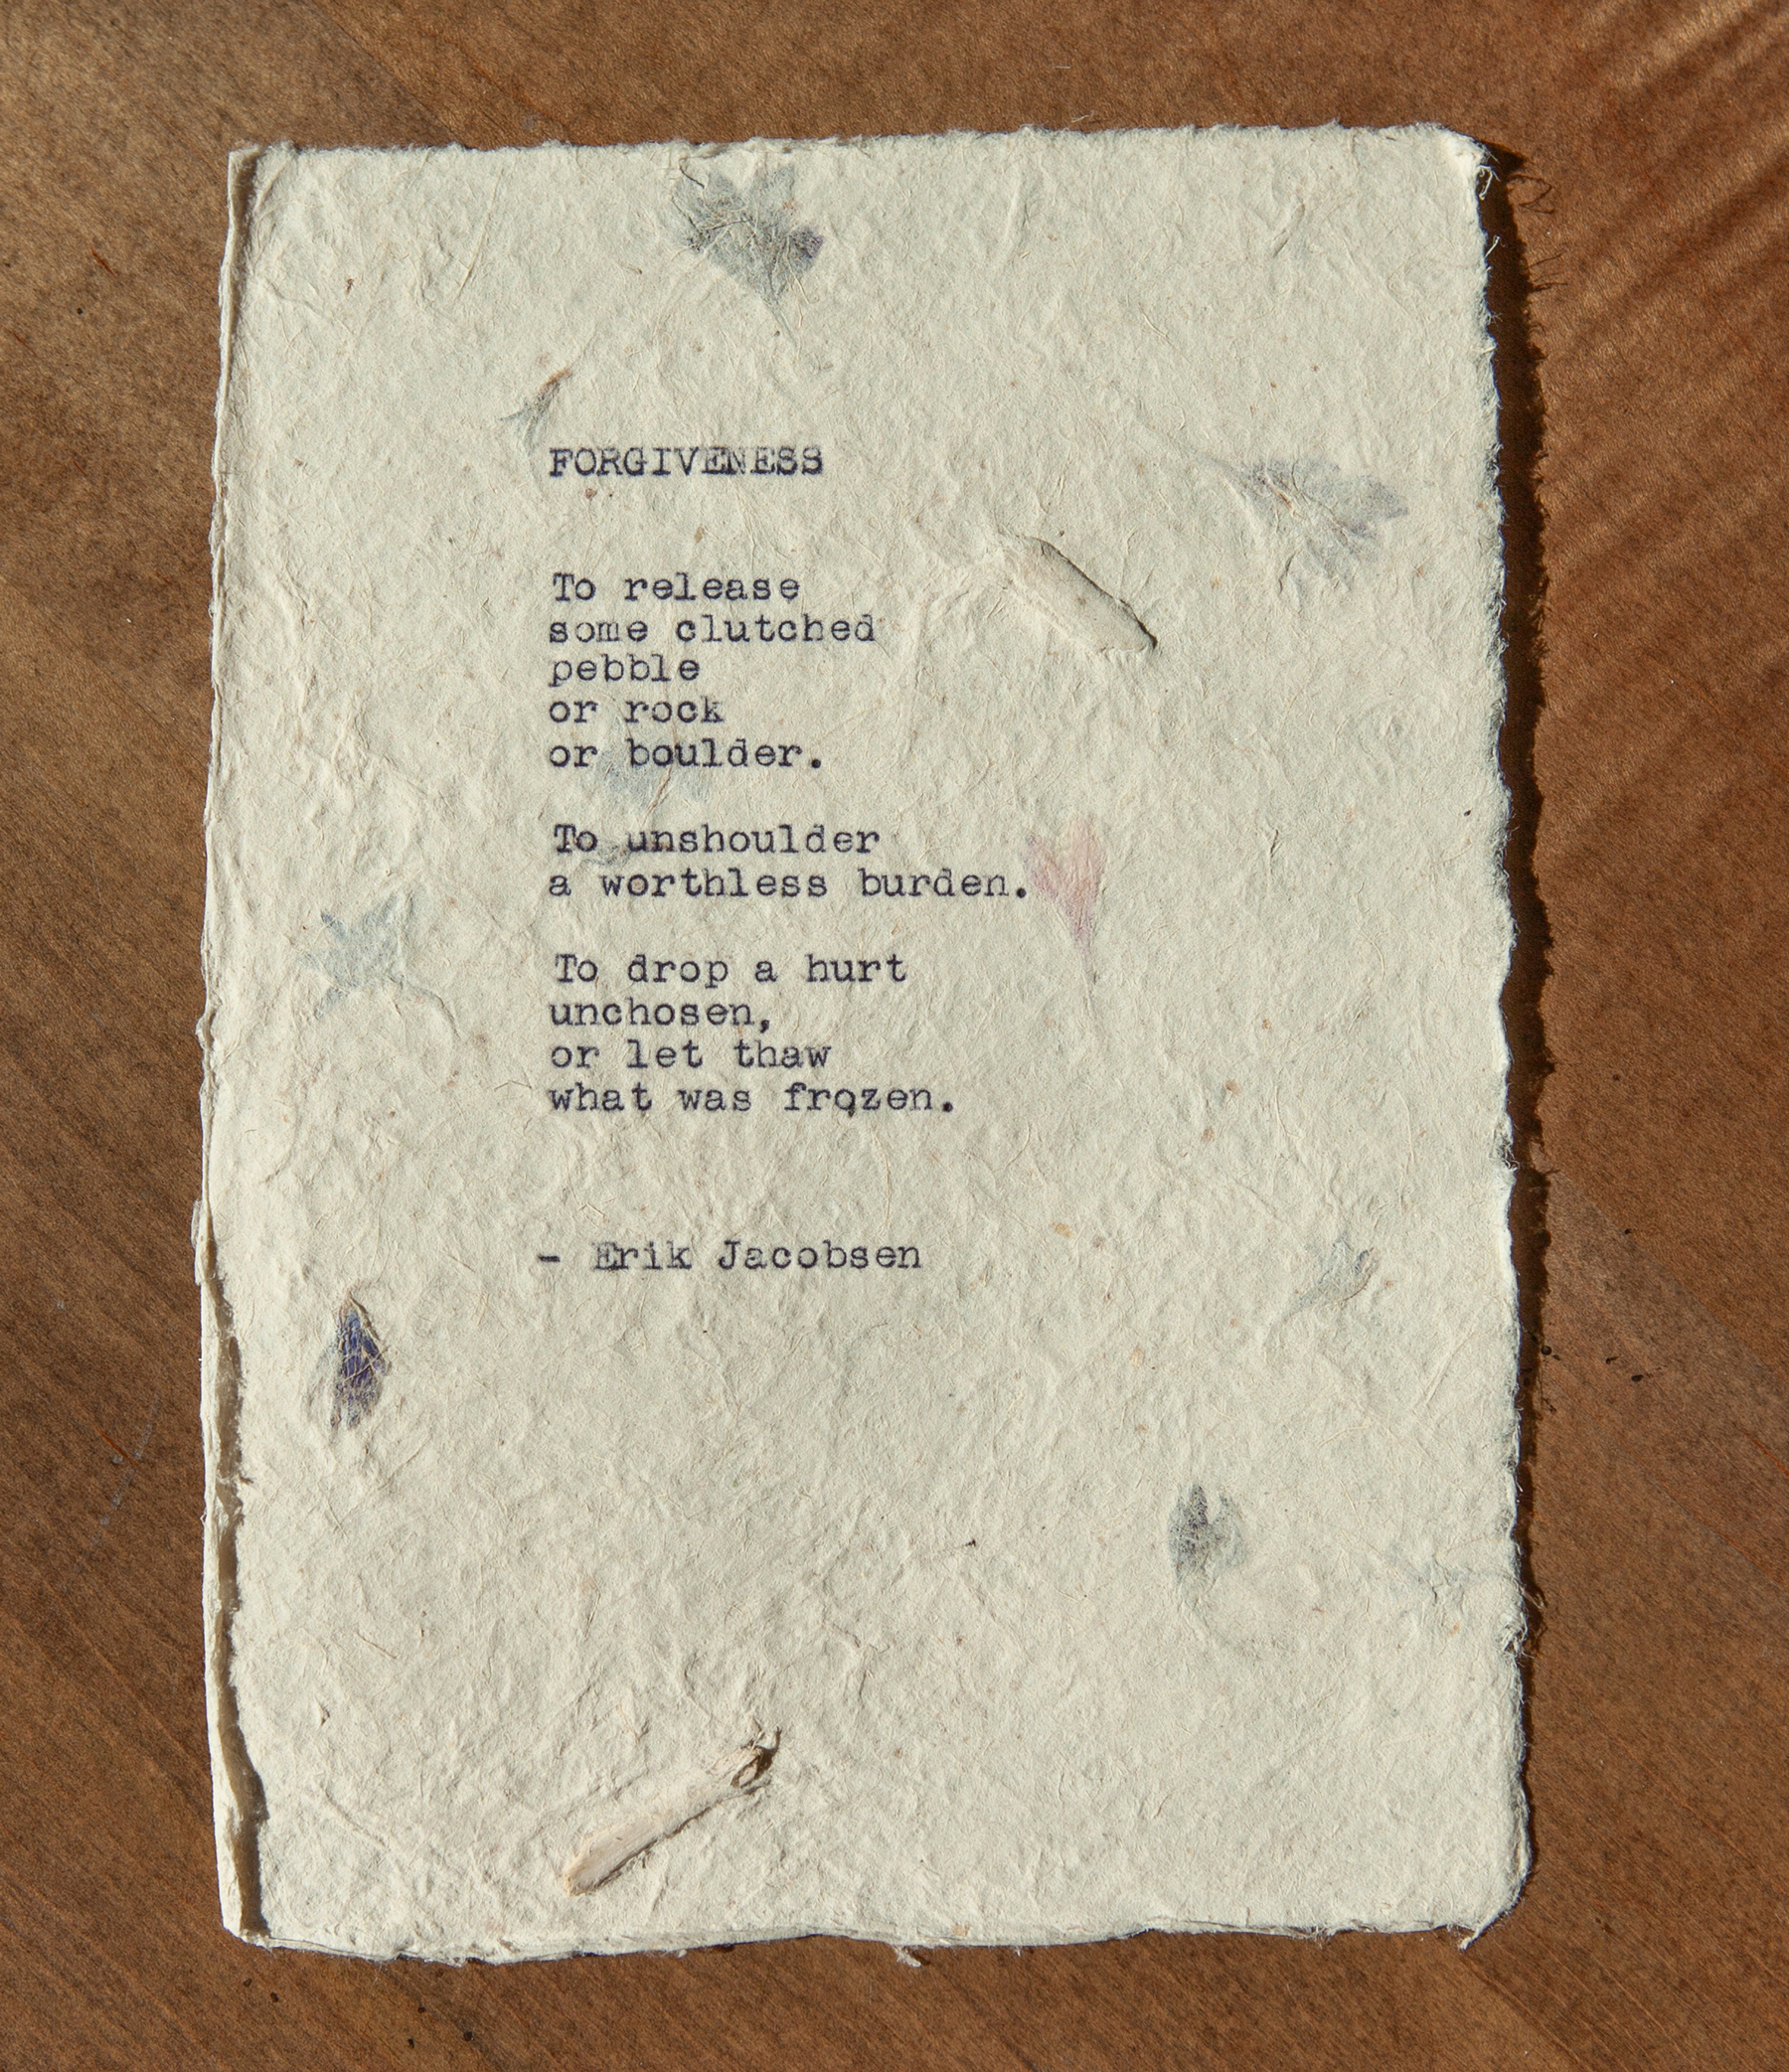 FORGIVENESS
To release
some clutched
pebble
or rock
or boulder.
To unshoulder
a worthless burden.
To drop a hurt
unchosen,
or let thaw
what was frozen.
- Erik Jacobsen